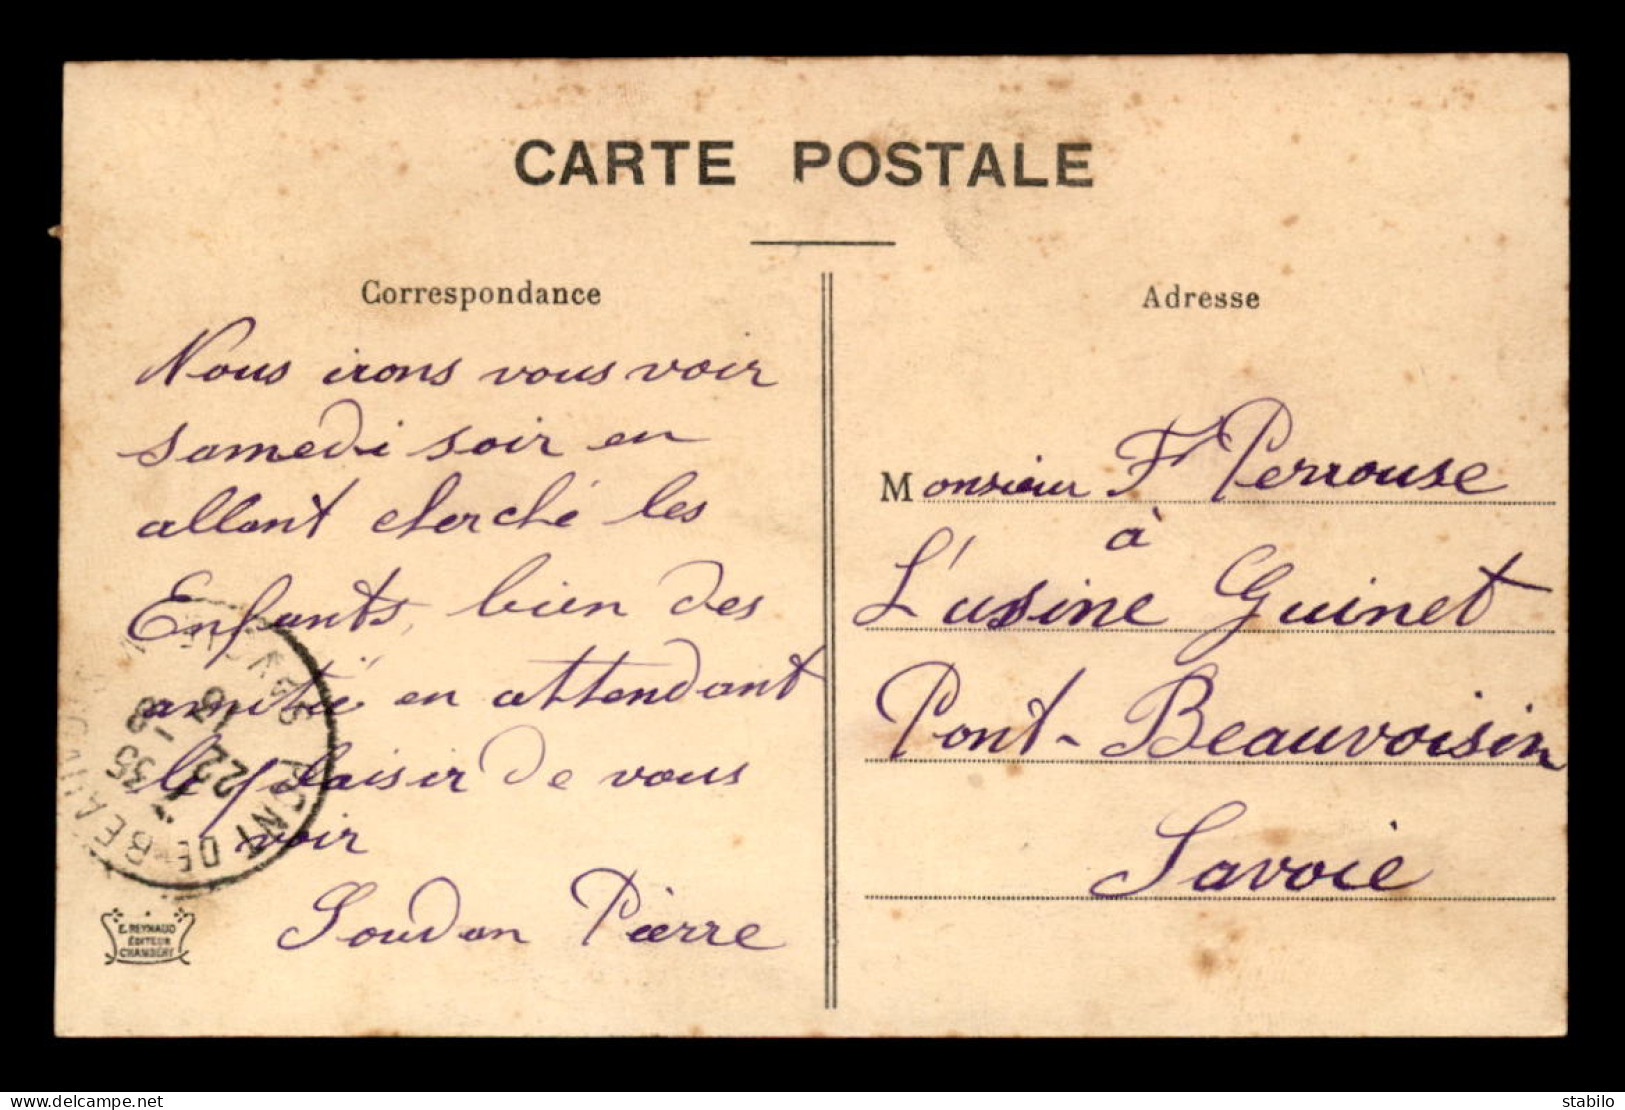 CARTE POSTALE
Correspondance
Nous irons vous voir
samedi soir en
allant cherché les
Enfants, bien des
amitié en attendant
le plaisir de vous
voir
Soudan Pierre
E. REYNAUD
ÉDITEUR
CHAMBÉRY
PONT DE BEAUVOISIN
SAVOIE
7 35
22
Adresse
Monsieur F Perrouse
à
L'usine Guinet
Pont-Beauvoisin
Savoie
www.delcampe.net
stabilo